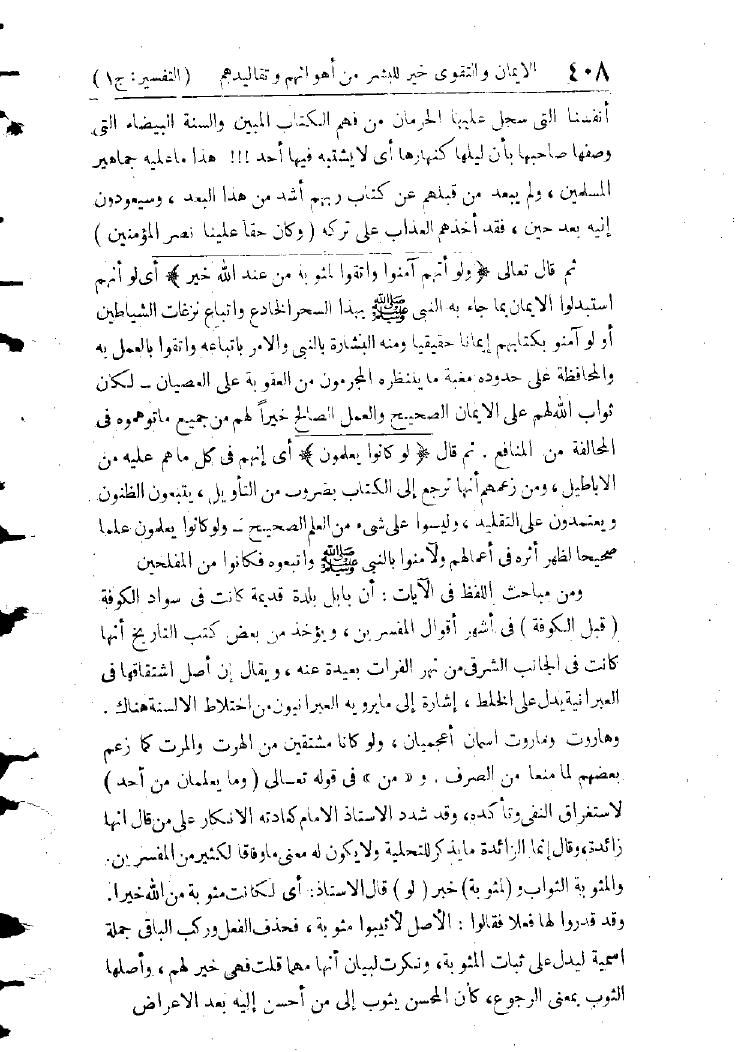 ٤٠٨ الايمان والتقوى خير للبشر من أهوائهم وتقاليدهم (التفسير: ج١)
أنفسنا التى سجل عليها الحرمان من فهم الكتاب المبين والسنة البيضاء التى
وصفها صاحبها بأن ليلها كنهارها أى لا يشتبه فيها أحد !!! هذا ما عليه جماهير
المسلمين ، ولم يبعد من قبلهم عن كتاب ربهم أشد من هذا البعد ، وسيعودون
إليه بعد حين ، فقد أخذهم العذاب على تركه ( وكان حقاً علينا نصر المؤمنين )
ثم قال تعالى ﴿ ولو أنهم آمنوا واتقوا لمثوبة من عند الله خير ﴾ أى لو أنهم
استبدلوا الايمان بما جاء به النبى ﷺ بهذا السحر الخادع واتباع نزغات الشياطين
أو لو آمنو بكتابهم إيمانا حقيقيا ومنه البشارة بالنبى والامر باتباعه واتقوا بالعمل به
والمحافظة على حدوده مغبة ما ينتظره المجرمون من العقوبة على العصيان ــ لكان
ثواب الله لهم على الايمان الصحيح والعمل الصالح خيراً لهم من جميع ما توهموه فى
المخالفة من المنافع . ثم قال ﴿ لو كانوا يعلمون ﴾ أى إنهم فى كل ما هم عليه من
الاباطيل ، ومن زعمهم أنها ترجع إلى الكتاب بضروب من التأويل ، يتبعون الظنون
ويعتمدون على التقليد ، وليسوا على شىء من العلم الصحيح ــ ولو كانوا يعلمون علما
صحيحا لظهر أثره فى أعمالهم ولآمنوا بالنبى ﷺ واتبعوه فكانوا من المفلحين
ومن مباحث اللفظ فى الآيات : أن بابل بلدة قديمة كانت فى سواد الكوفة
( قبل الكوفة ) فى أشهر أقوال المفسرين ، ويؤخذ من بعض كتب التاريخ أنها
كانت فى الجانب الشرقى من نهر الفرات بعيدة عنه ، ويقال إن أصل اشتقاقها فى
العبرانية يدل على الخلط ، إشارة إلى ما يرويه العبرانيون من اختلاط الالسنة هناك .
وهاروت وماروت اسمان أعجميان ، ولو كانا مشتقين من الهرت والمرت كما زعم
بعضهم لما منعا من الصرف . و « من » فى قوله تعالى ( وما يعلمان من أحد )
لاستغراق النفى وتأكده، وقد شدد الاستاذ الامام كعادته الانكار على من قال انها
زائدة، وقال إنما الزائدة ما يذكر للتحلية ولا يكون له معنى ما وفاقا لكثير من المفسرين.
والمثوبة الثواب و(لمثوبة) خبر ( لو ) قال الاستاذ: أى لكانت مثوبة من الله خيرا.
وقد قدروا لها فعلا فقالوا : الأصل لأثيبوا مثوبة ، فحذف الفعل وركب الباقى جملة
اسمية ليدل على ثبات المثوبة، ونكرت لبيان أنها مهما قلت فهى خير لهم ، وأصلها
الثوب بمعنى الرجوع، كأن المحسن يثوب إلى من أحسن إليه بعد الاعراض